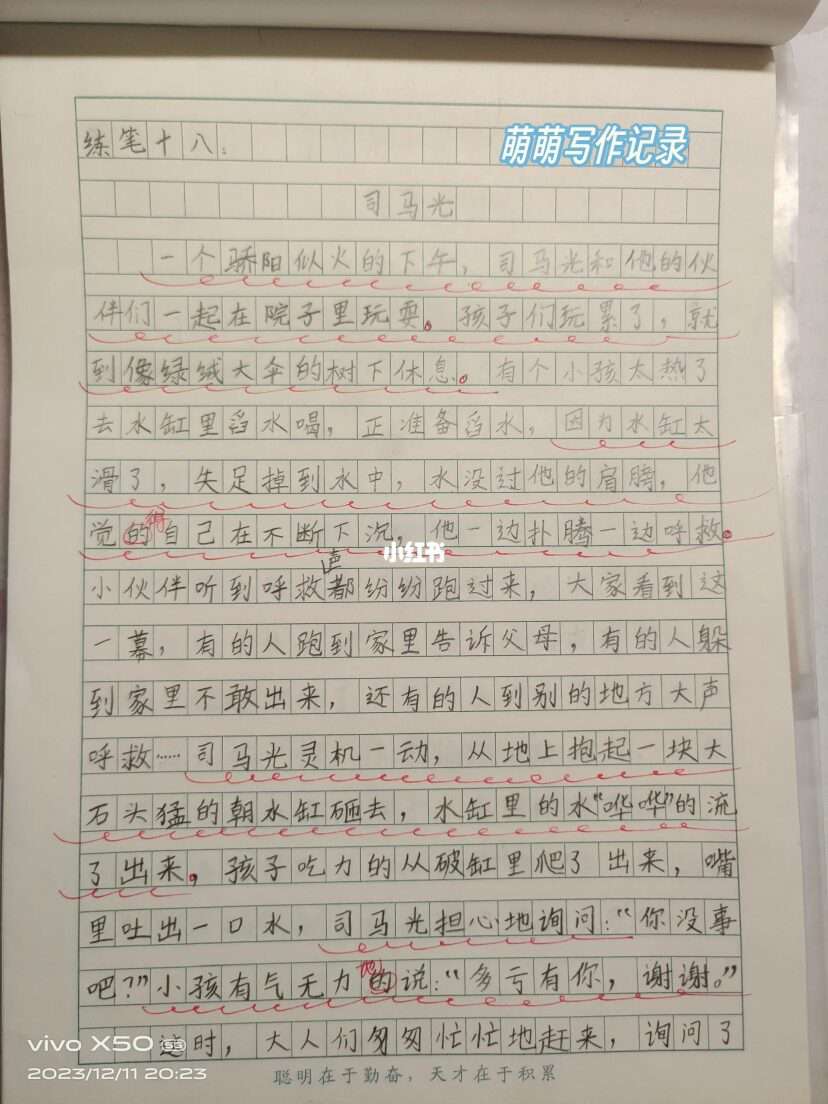 萌萌写作记录
练笔十八：
司马光
一个骄阳似火的下午，司马光和他的伙
伴们一起在院子里玩耍。孩子们玩累了，就
到像绿绒大伞的树下休息。有个小孩太热了
去水缸里舀水喝，正准备舀水，因为水缸太
滑了，失足掉到水中，水没过他的肩膀，他
觉的得自己在不断下沉，他一边扑腾一边呼救。
小伙伴听到呼救声都纷纷跑过来，大家看到这
一幕，有的人跑到家里告诉父母，有的人躲
到家里不敢出来，还有的人到别的地方大声
呼救……司马光灵机一动，从地上抱起一块大
石头猛的朝水缸砸去，水缸里的水“哗哗”的流
了出来。孩子吃力的从破缸里爬了出来，嘴
里吐出一口水，司马光担心地询问：“你没事
吧？”小孩有气无力的地说：“多亏有你，谢谢。”
这时，大人们匆匆忙忙地赶来，询问了
小红书
vivo X50 5G
2023/12/11 20:23
聪明在于勤奋，天才在于积累